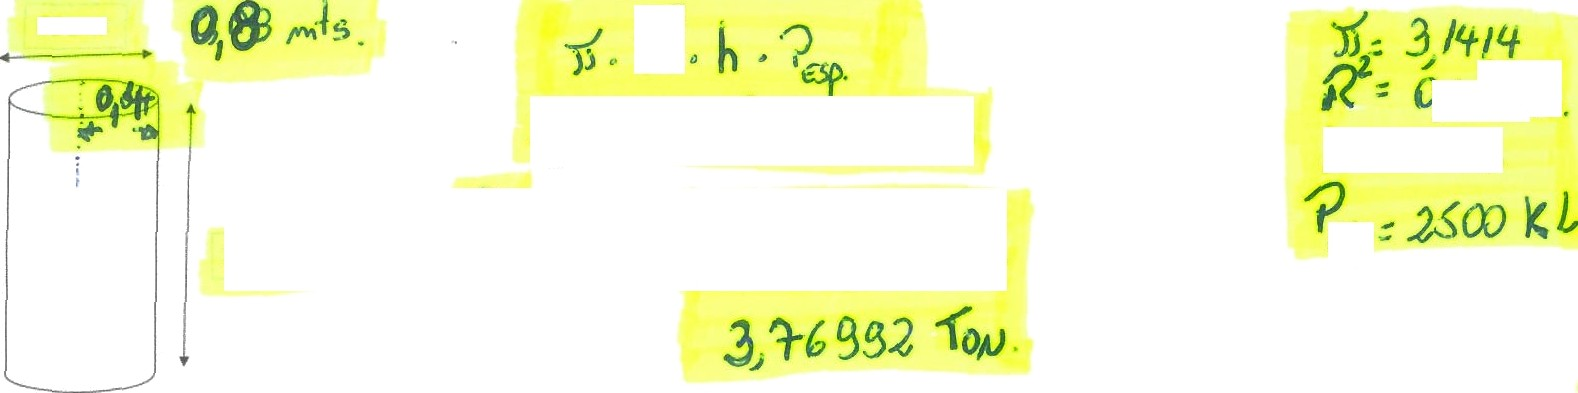 0,8 mts.
0,4
π. . h . P ESP.
3,76992 TON.
π = 3,1414
R² = 0
P = 2500 KL